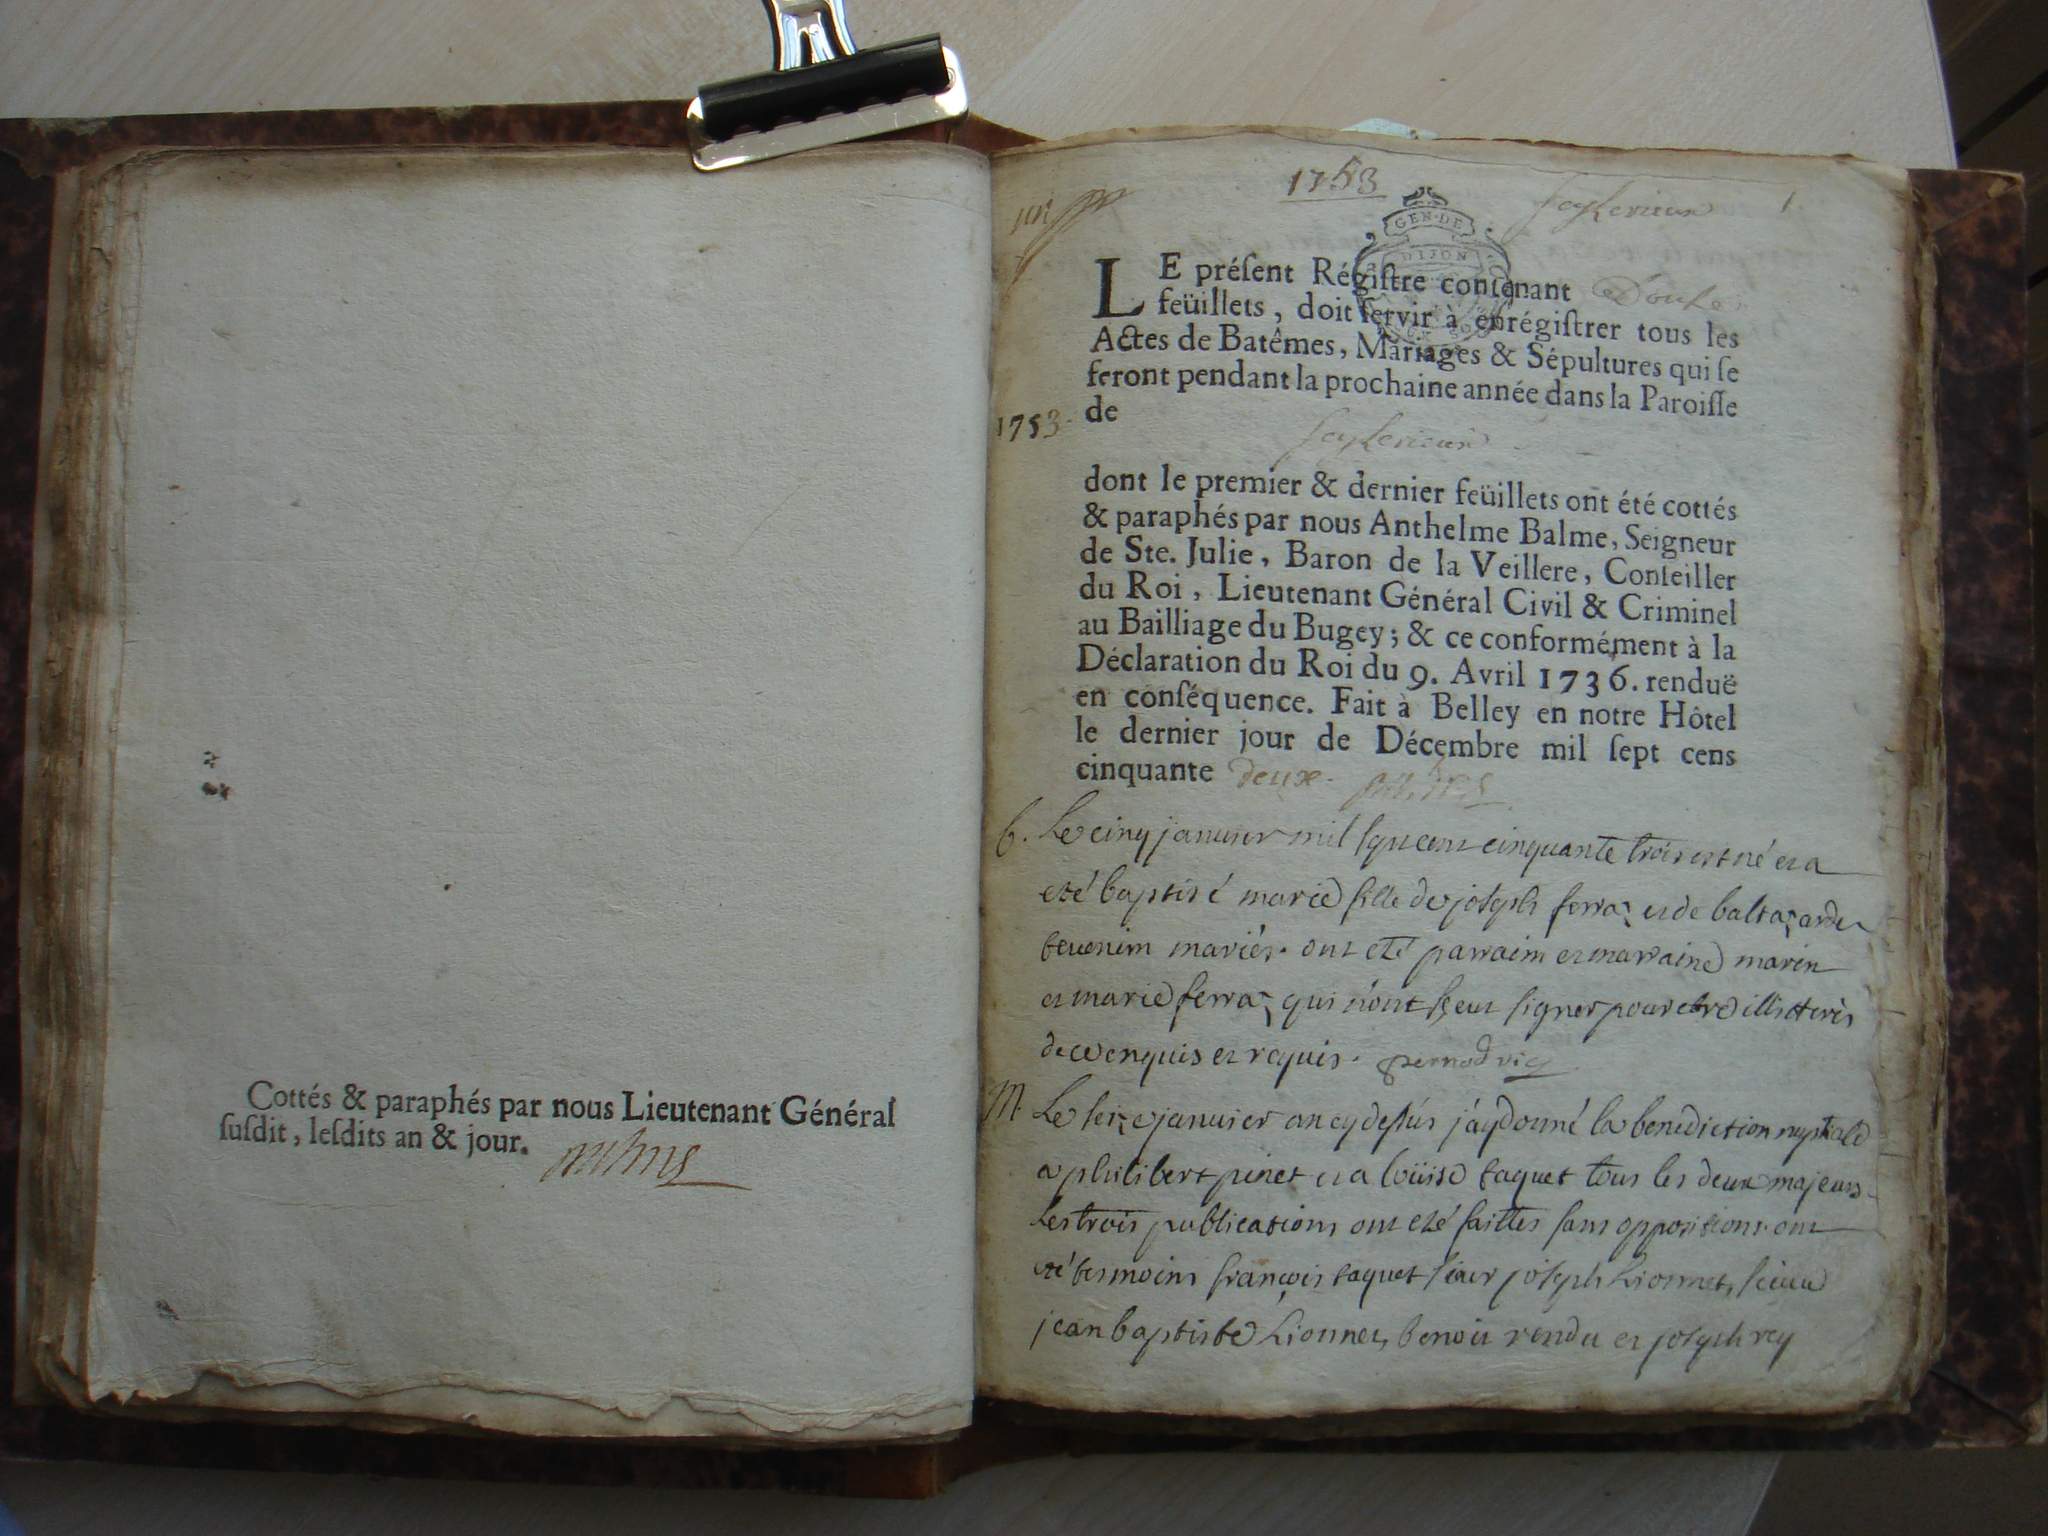 Cottés & paraphés par nous Lieutenant Général
ſuſdit, leſdits an & jour.
1753
1
GEN·DE
DIJON
LE préſent Régiſtre contenant Douze
feüillets, doit ſervir à enrégiſtrer tous les
Actes de Batêmes, Mariages & Sépultures qui ſe
feront pendant la prochaine année dans la Paroiſſe
de
1753
Seyſerieux
dont le premier & dernier feüillets ont été cottés
& paraphés par nous Anthelme Balme, Seigneur
de Ste. Julie, Baron de la Veillere, Conſeiller
du Roi, Lieutenant Général Civil & Criminel
au Bailliage du Bugey; & ce conformément à la
Déclaration du Roi du 9. Avril 1736. renduë
en conſéquence. Fait à Belley en notre Hôtel
le dernier jour de Décembre mil ſept cens
cinquante deux.
b. Le cinq janvier mil sept cent cinquante trois est né et a
eté baptisé marie fille de joseph ferraz et de baltazarde
tevenin mariés. ont eté parrain et marraine marin
et marie ferraz qui n'ont sceu signer pour etre illitterés
de ce enquis et requis. pernod vic
M. Le seize janvier an cy dessus j'ay donné la benediction nuptiale
a philibert pinet et a loüise taquet tous les deux majeurs
les trois publications ont eté faittes sans oppositions. ont
eté temoins françois taquet sieur joseph Lionnet, sieur
jean baptiste Lionnet, benoit rendu et joseph rey